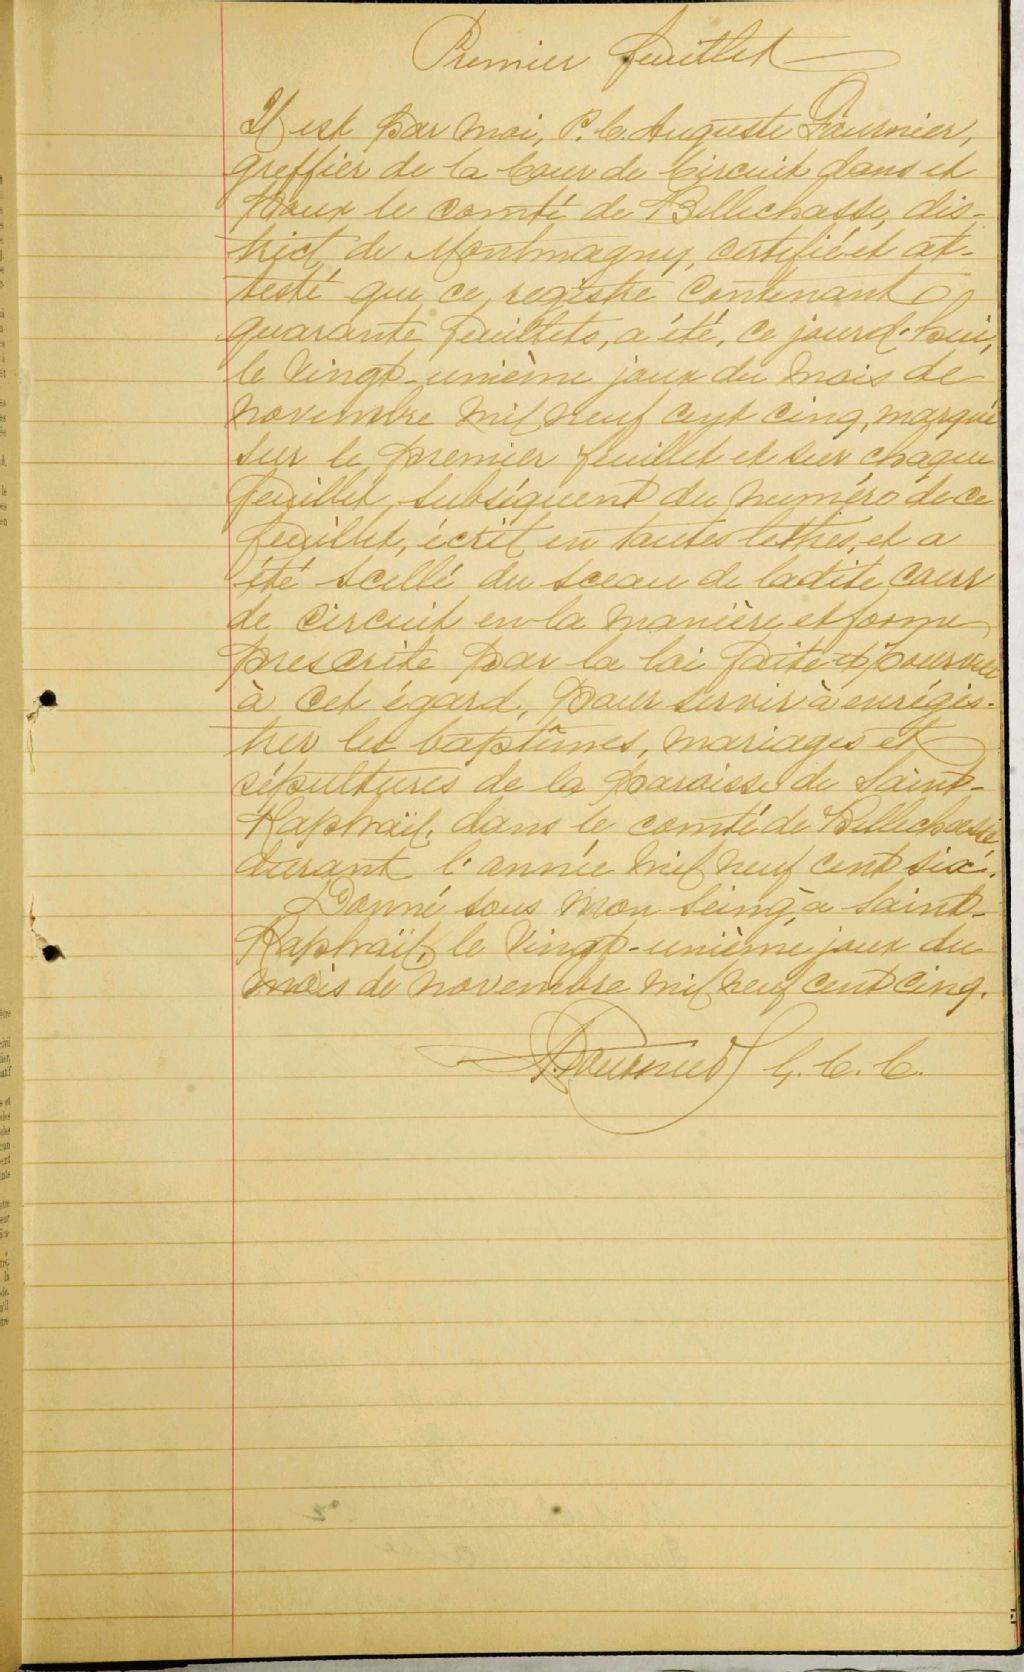 Premier feuillet
Il est par moi, P. C. Auguste Fournier,
greffier de la Cour de Circuit dans et
pour le comté de Bellechasse, dis-
trict de Montmagny, certifié et at-
testé que ce registre contenant
quarante feuillets, a été, ce jourd'hui,
le vingt-unième jour du mois de
novembre mil neuf cent cinq, marqué
sur le premier feuillet et sur chaque
feuillet subséquent du numéro de ce
feuillet, écrit en toutes lettres, et a
été scellé du sceau de ladite cour
de circuit en la manière et forme
prescrite par la loi faite et pourvue
à cet égard, pour servir à enrégis-
trer les baptêmes, mariages et
sépultures de la paroisse de Saint-
Raphaël, dans le comté de Bellechasse
durant l'année mil neuf cent six.
Donné sous mon seing, à Saint-
Raphaël, le vingt-unième jour du
mois de novembre mil neuf cent cinq.
Fournier G. C. C.